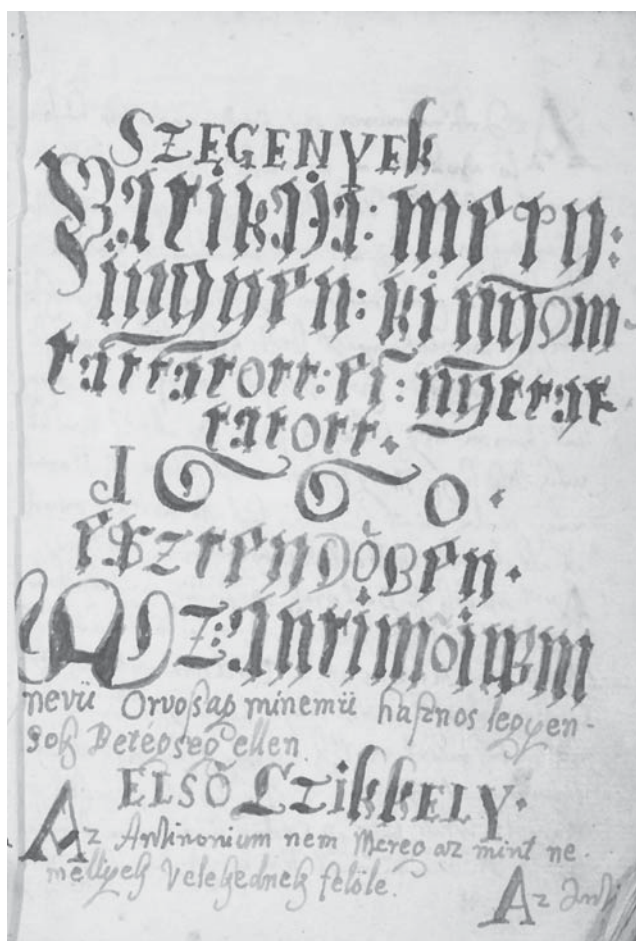 SZEGENYEk
Patikaja: mely:
inngyen: ki nyom
tattatott: es: nyitat
tatott.
1660.
eszтendőben.
AZ: Antimoiubm
nevü Orvoßag minemü haßnos legyen-
sok Betegseg ellen
ELSŐ CZikkELY.
Az Antinonium nem Mereg az mint ne-
mellyek velekednek felöle.
Az Anti